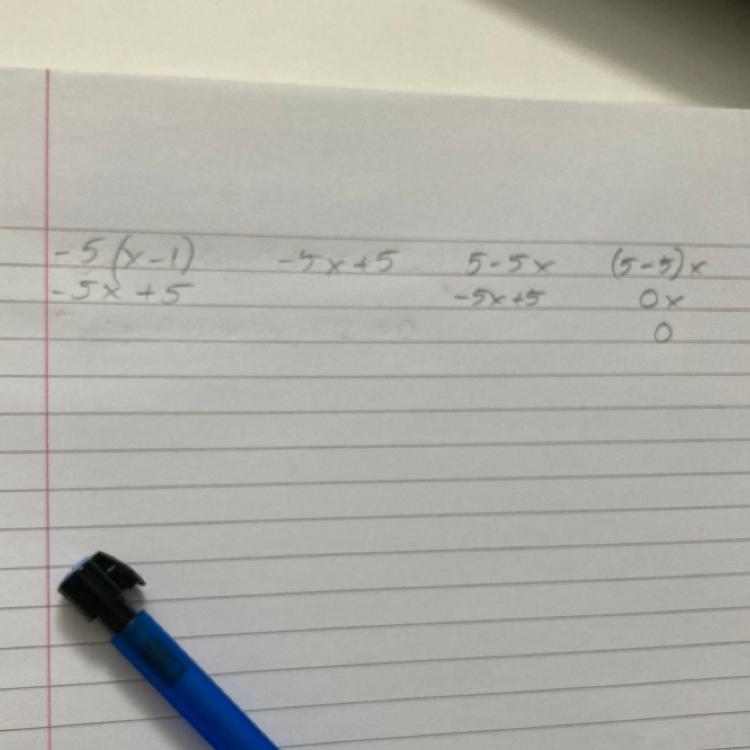 -5(x-1) -5x+5 5-5x (5-5)x
-5x+5 -5x+5 0x
0